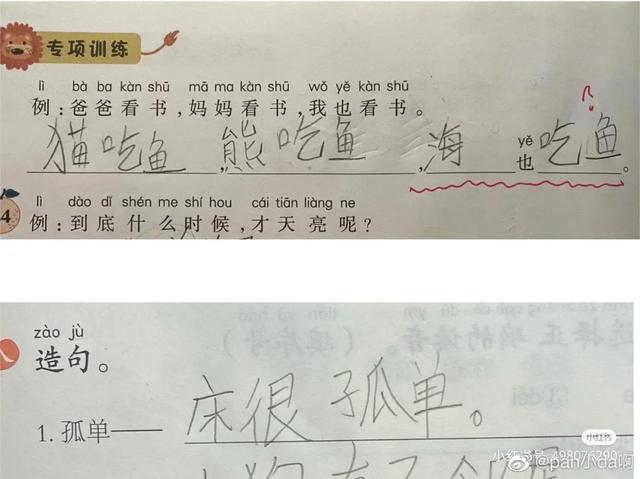 专项训练
lì bà ba kàn shū mā ma kàn shū wǒ yě kàn shū
例：爸爸看书，妈妈看书，我也看书。
yě
猫吃鱼，熊吃鱼，海也吃鱼。
?
4
lì dào dǐ shén me shí hou cái tiān liàng ne
例：到底什么时候，才天亮呢？
zào jù
造句。
1. 孤单——床很孤单。
小红书
小红书号 498076290
@pan小da啊